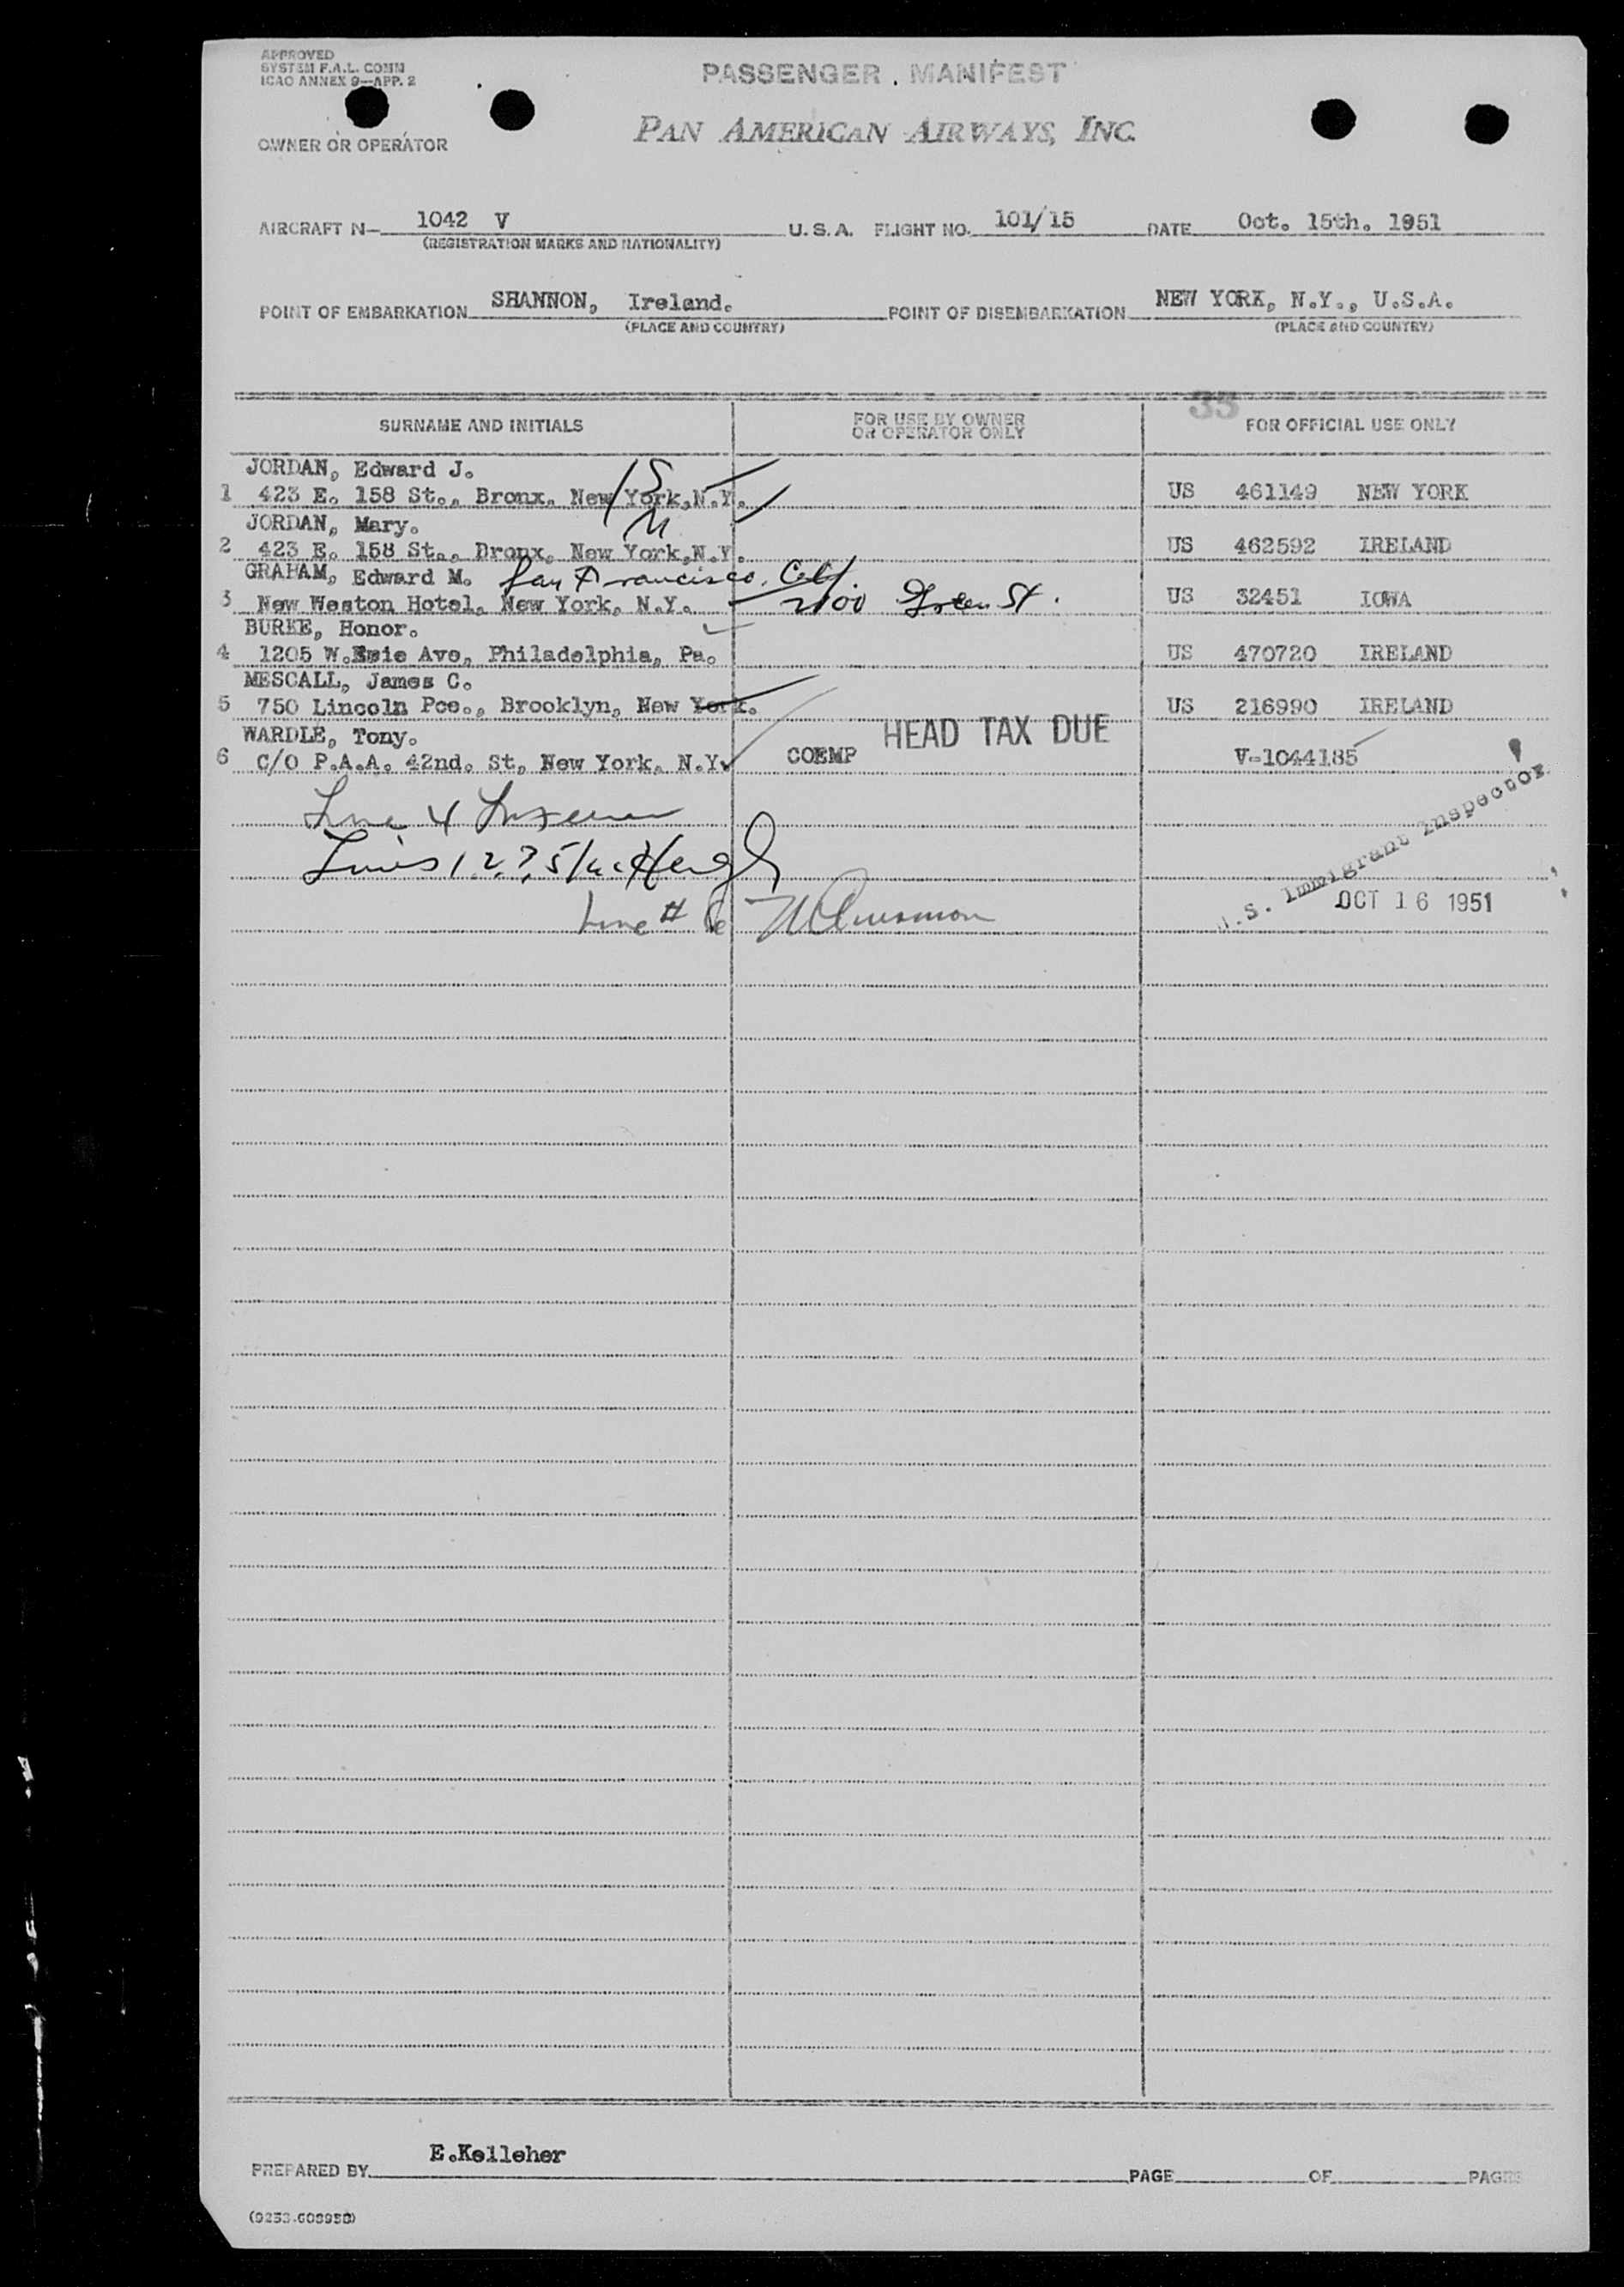 APPROVED
SYSTEM F.A.L. COMM
ICAO ANNEX 9—APP. 2
PASSENGER MANIFEST
OWNER OR OPERATOR
PAN AMERICAN AIRWAYS, INC.
AIRCRAFT N— 1042 V U.S.A. FLIGHT NO. 101/15 DATE Oct. 15th. 1951
(REGISTRATION MARKS AND NATIONALITY)
POINT OF EMBARKATION SHANNON, Ireland. POINT OF DISEMBARKATION NEW YORK, N.Y., U.S.A.
(PLACE AND COUNTRY) (PLACE AND COUNTRY)
33
SURNAME AND INITIALS FOR USE BY OWNER OR OPERATOR ONLY FOR OFFICIAL USE ONLY
JORDAN, Edward J.
1 423 E. 158 St., Bronx, New York,N.Y. US 461149 NEW YORK
JORDAN, Mary. M
2 423 E. 158 St., Bronx, New York,N.Y. US 462592 IRELAND
GRAHAM, Edward M. San Francisco, Calif.
3 New Weston Hotel, New York, N.Y. 2100 Green St. US 32451 IOWA
BURKE, Honor.
4 1205 W. Ave, Philadelphia, Pa. US 470720 IRELAND
MESCALL, James C.
5 750 Lincoln Pce., Brooklyn, New York. US 216990 IRELAND
WARDLE, Tony. HEAD TAX DUE
6 C/O P.A.A. 42nd. St, New York, N.Y. COEMP V-1044185
Line 4
Lines 1 2 3 5
Line # 6
U.S. Immigrant Inspector
OCT 16 1951
PREPARED BY E.Kelleher PAGE OF PAGES